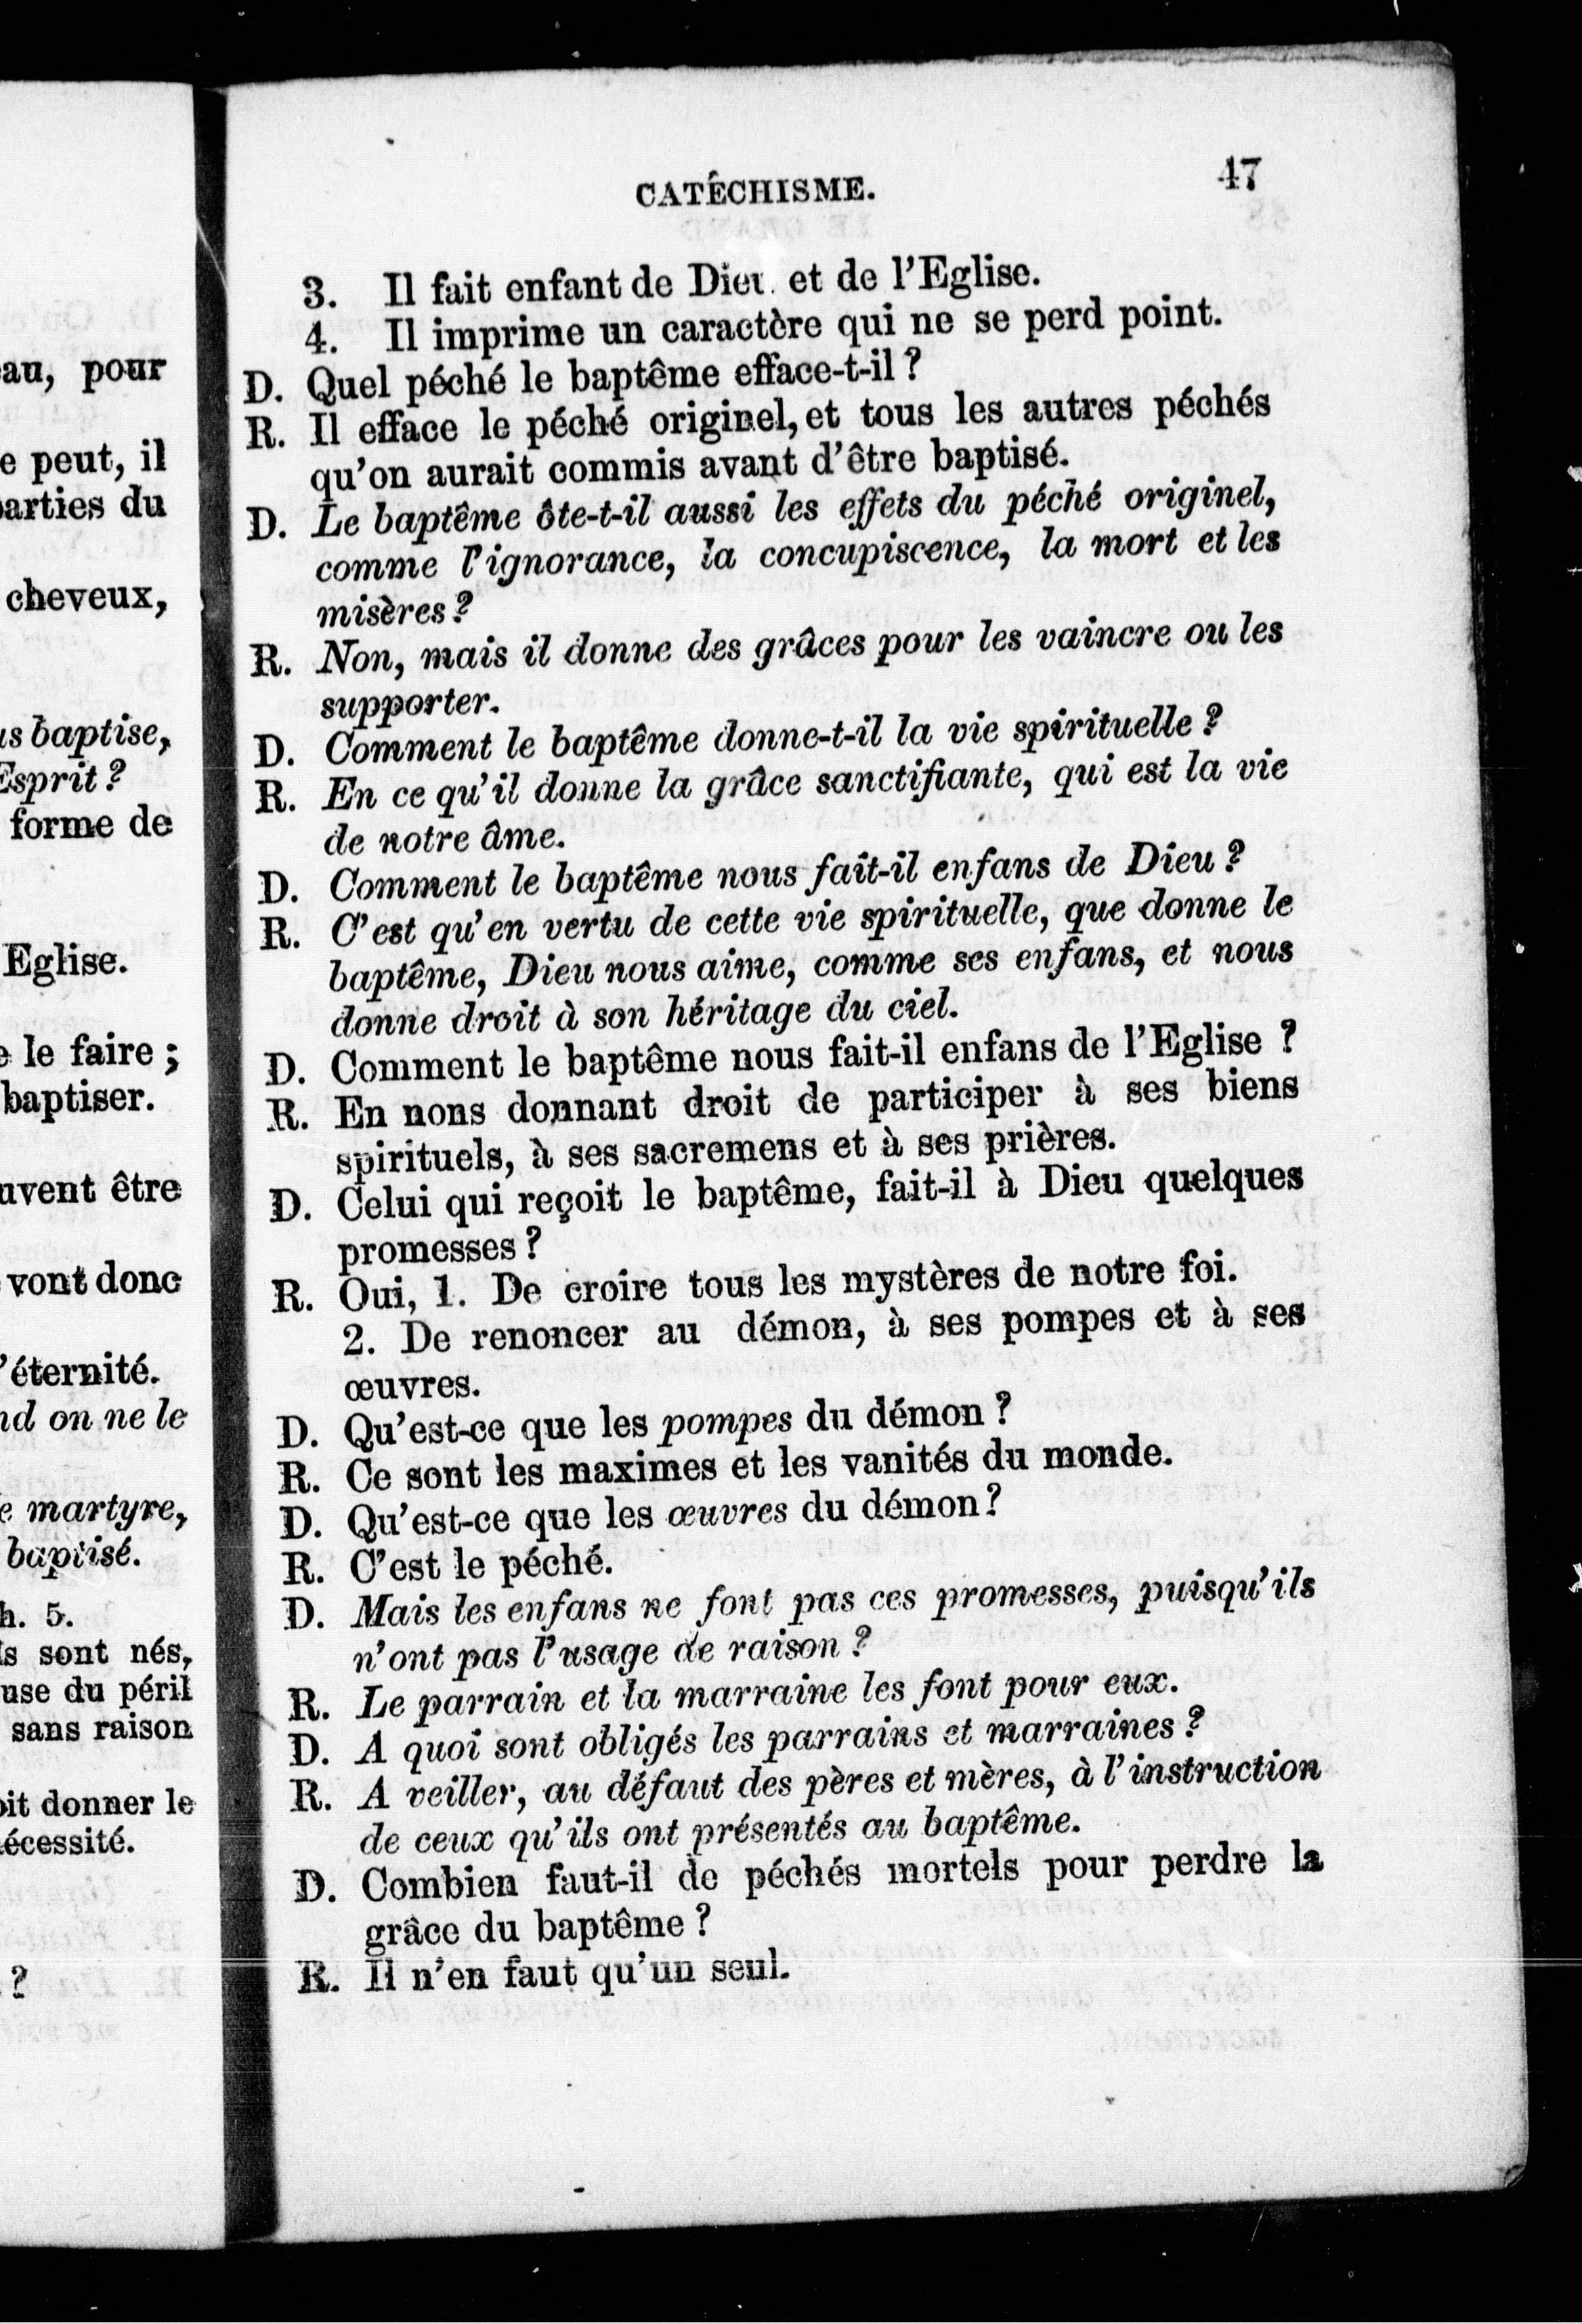 au, pour
e peut, il
arties du
cheveux,
s baptise,
Esprit ?
forme de
Eglise.
le faire ;
baptiser.
uvent être
vont donc
'éternité.
on ne le
martyre,
baptisé.
h. 5.
s sont nés,
use du péril
sans raison
oit donner le
écessité.
?
CATÉCHISME.
47
3. Il fait enfant de Dieu et de l'Eglise.
4. Il imprime un caractère qui ne se perd point.
D. Quel péché le baptême efface-t-il ?
R. Il efface le péché originel, et tous les autres péchés
qu'on aurait commis avant d'être baptisé.
D. Le baptême ôte-t-il aussi les effets du péché originel,
comme l'ignorance, la concupiscence, la mort et les
misères ?
R. Non, mais il donne des grâces pour les vaincre ou les
supporter.
D. Comment le baptême donne-t-il la vie spirituelle ?
R. En ce qu'il donne la grâce sanctifiante, qui est la vie
de notre âme.
D. Comment le baptême nous fait-il enfans de Dieu ?
R. C'est qu'en vertu de cette vie spirituelle, que donne le
baptême, Dieu nous aime, comme ses enfans, et nous
donne droit à son héritage du ciel.
D. Comment le baptême nous fait-il enfans de l'Eglise ?
R. En nons donnant droit de participer à ses biens
spirituels, à ses sacremens et à ses prières.
D. Celui qui reçoit le baptême, fait-il à Dieu quelques
promesses ?
R. Oui, 1. De croire tous les mystères de notre foi.
2. De renoncer au démon, à ses pompes et à ses
œuvres.
D. Qu'est-ce que les pompes du démon ?
R. Ce sont les maximes et les vanités du monde.
D. Qu'est-ce que les œuvres du démon ?
R. C'est le péché.
D. Mais les enfans ne font pas ces promesses, puisqu'ils
n'ont pas l'usage de raison ?
R. Le parrain et la marraine les font pour eux.
D. A quoi sont obligés les parrains et marraines ?
R. A veiller, au défaut des pères et mères, à l'instruction
de ceux qu'ils ont présentés au baptême.
D. Combien faut-il de péchés mortels pour perdre la
grâce du baptême ?
R. Il n'en faut qu'un seul.